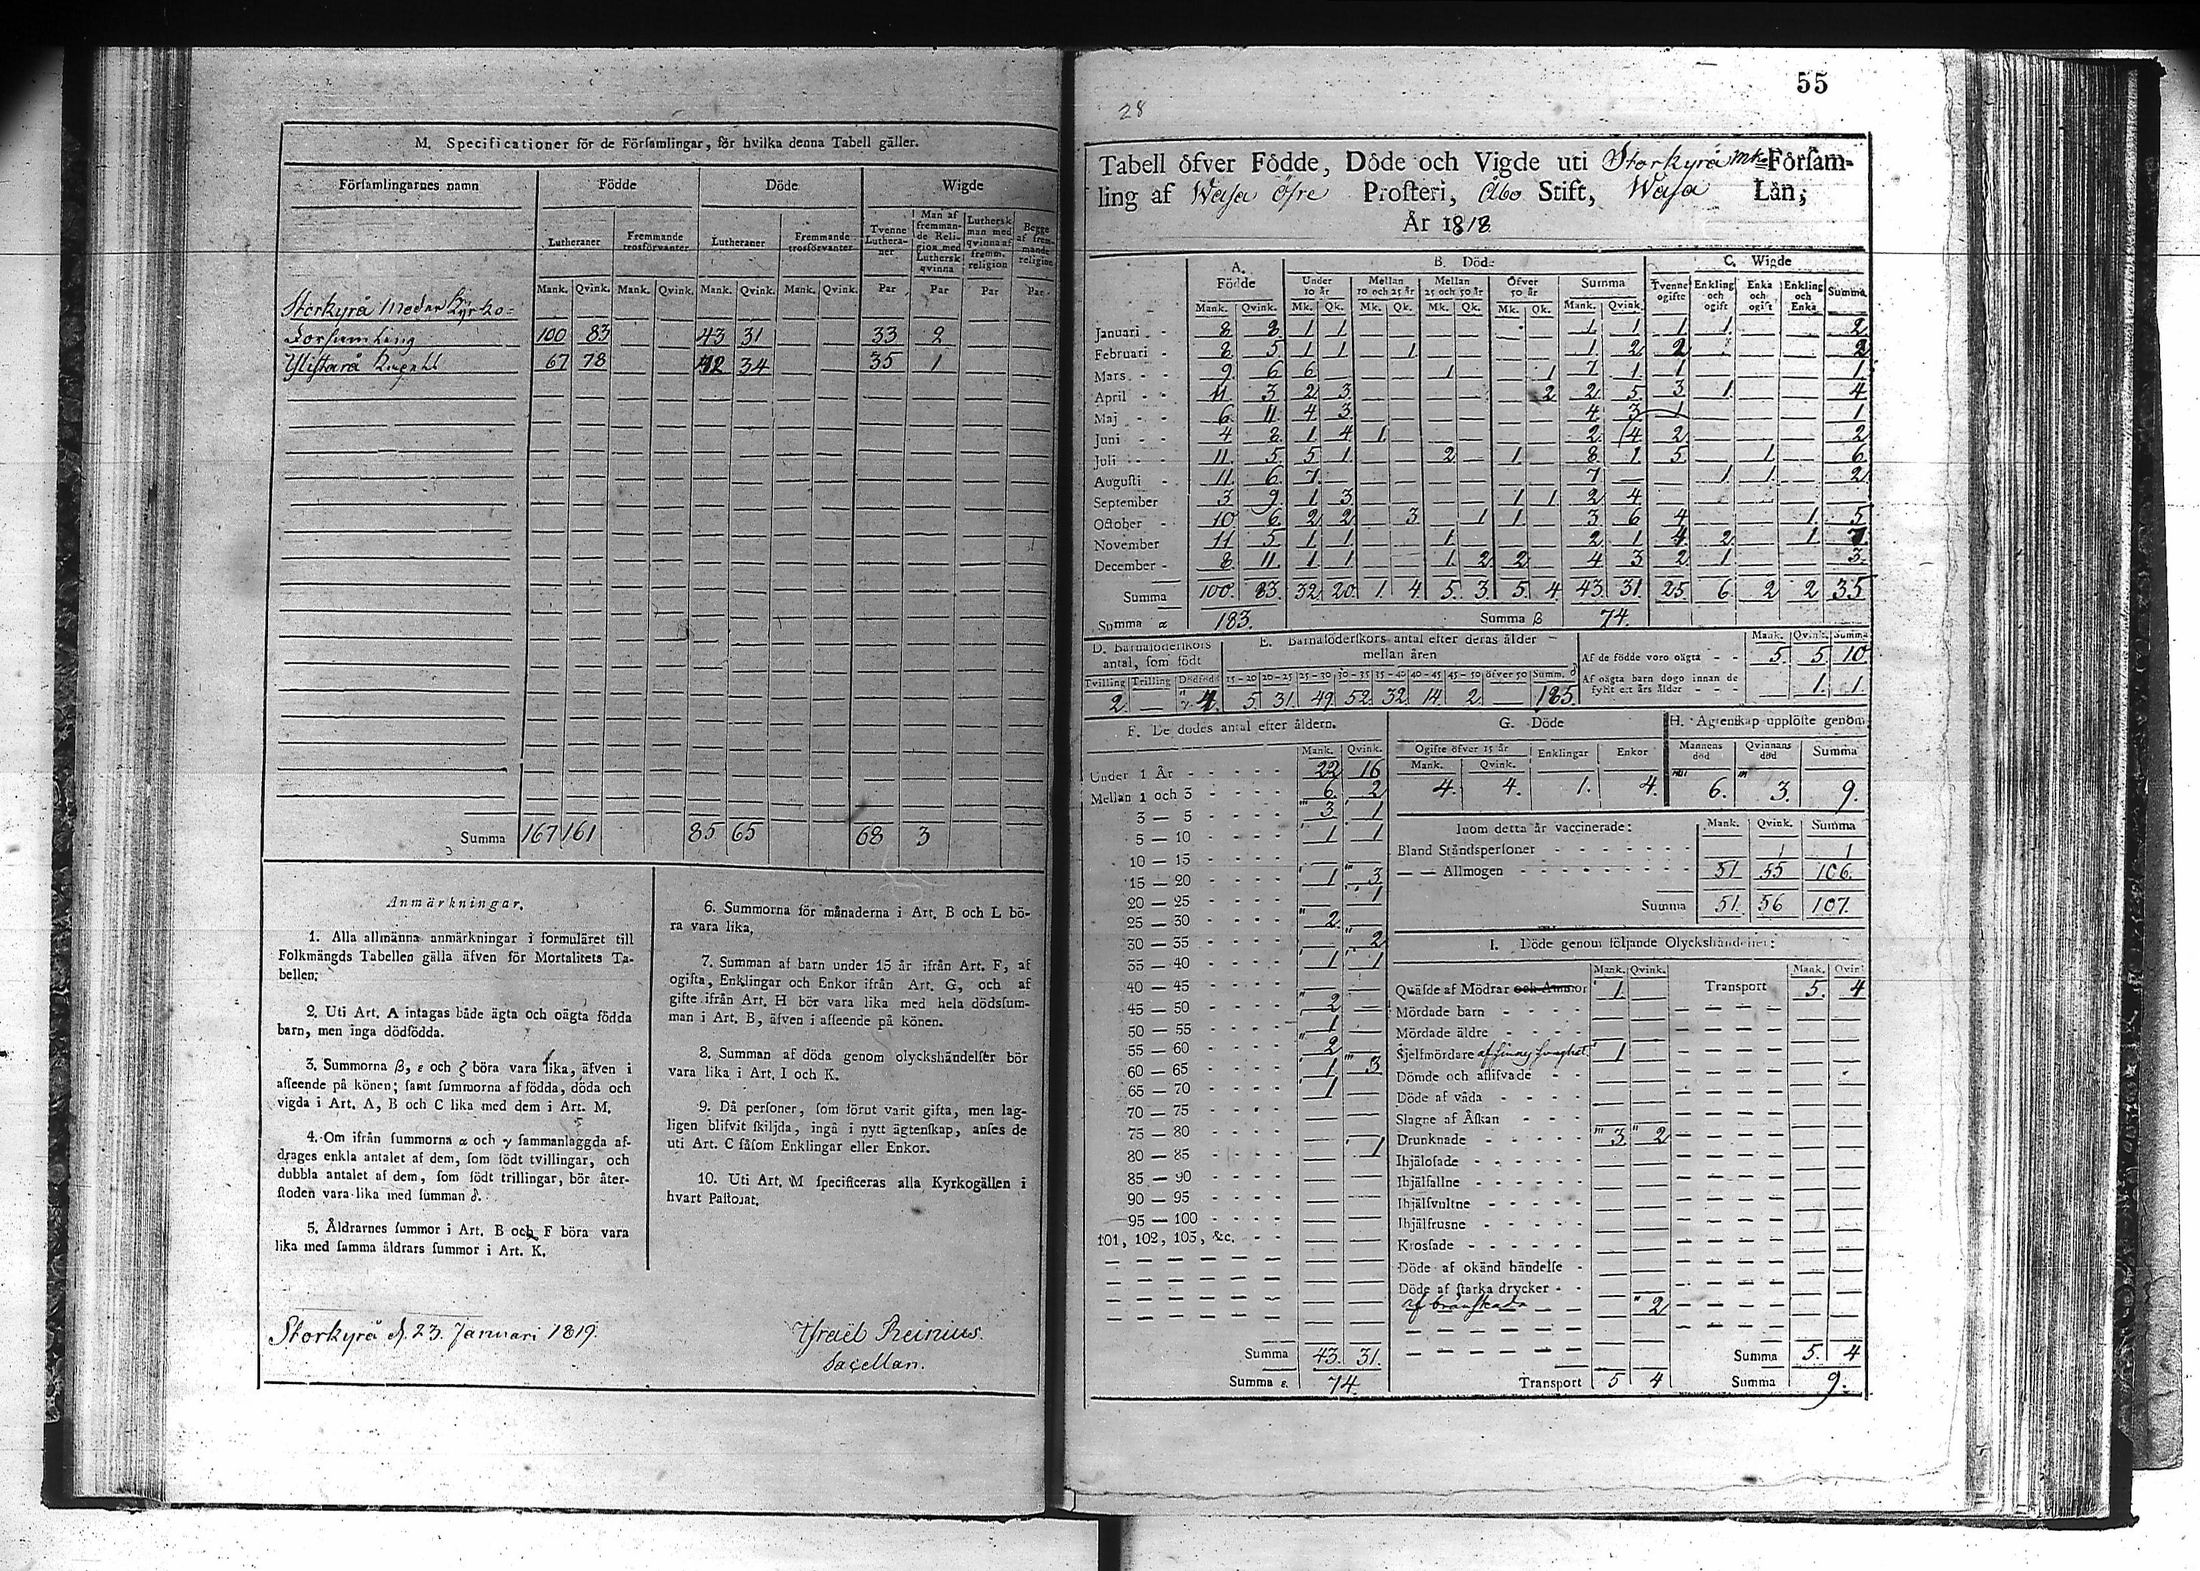 M. Specificationer för de Församlingar, för hvilka denna Tabell gäller.
Församlingarnes namn Födde Döde Wigde
Lutheraner Fremmande trosförvanter Lutheraner Fremmande trosförvanter Tvenne Lutheraner Man af fremmande Religion med Luthersk qvinna Luthersk man med qvinna af fremm. religion Begge af fremmande religion
Mank. Qvink. Mank. Qvink. Mank. Qvink. Mank. Qvink. Par Par Par Par
Storkyrå Moder Kyrko=
Församling 100 83 43 31 33 2
67 78 42 34 35 1
Summa 167 161 85 65 68 3
Anmärkningar.
1. Alla allmänna anmärkningar i formuläret till
Folkmängds Tabellen gälla äfven för Mortalitets Ta-
bellen;
2. Uti Art. A intagas både ägta och oägta födda
barn, men inga dödfödda.
3. Summorna β, ε och ζ böra vara lika, äfven i
afseende på könen; samt summorna af födda, döda och
vigda i Art. A, B och C lika med dem i Art. M.
4. Om ifrån summorna α och γ sammanlaggda af-
drages enkla antalet af dem, som födt tvillingar, och
dubbla antalet af dem, som födt trillingar, bör åter-
stoden vara lika med summan δ.
5. Åldrarnes summor i Art. B och F böra vara
lika med samma åldrars summor i Art. K.
6. Summorna för månaderna i Art. B och L bö-
ra vara lika.
7. Summan af barn under 15 år ifrån Art. F, af
ogifta, Enklingar och Enkor ifrån Art. G, och af
gifte ifrån Art. H bör vara lika med hela dödsum-
man i Art. B, äfven i afseende på könen.
8. Summan af döda genom olyckshändelser bör
vara lika i Art. I och K.
9. Då personer, som förut varit gifta, men lag-
ligen blifvit skiljda, ingå i nytt ägtenskap, anses de
uti Art. C såsom Enklingar eller Enkor.
10. Uti Art. M specificeras alla Kyrkogällen i
hvart Pastorat.
Storkyrå d. 23. Januari 1819.
Israël Reinius.
Sacellan.
55
28
Tabell öfver Födde, Döde och Vigde uti Storkyrå Församling
ling af Wasa Öfre Prosteri, Åbo Stift, Wasa Län,
År 1818
A. Födde B. Döde C. Wigde
Under 10 år Mellan 10 och 25 år Mellan 25 och 50 år Öfver 50 år Summa Tvenne ogifte Enkling och ogift Enka och ogift Enkling och Enka Summa
Mank. Qvink. Mk. Qk. Mk. Qk. Mk. Qk. Mk. Qk. Mank. Qvink.
Januari 8 8 1 1 1 1 1 1 2
Februari 8 5 1 1 1 1 2 2 2
Mars 9 6 6 1 1 7 1 1 1
April 11 3 2 3 2 2 5 3 1 4
Maj 6 11 4 3 4 3 1 1
Juni 4 8 1 4 1 2 4 2 2
Juli 11 5 5 1 2 1 8 1 5 1 6
Augusti 11 6 7 7 1 1 2
September 3 9 1 3 1 1 2 4
October 10 6 2 2 3 1 1 3 6 4 1 5
November 11 5 1 1 1 2 1 4 2 1 7
December 8 11 1 1 1 2 2 4 3 2 1 3
Summa 100 83 32 20 1 4 5 3 5 4 43 31 25 6 2 2 35
Summa α 183. Summa β 74.
D. Barnaföderskors antal, som födt
Tvilling Trilling Dödfödd
2. 4.
E. Barnaföderskors antal efter deras ålder mellan åren
15-20 20-25 25-30 30-35 35-40 40-45 45-50 öfver 50 Summ. δ
5 31 49 52 32 14 2 185.
Mank. Qvink. Summa
Af de födde voro oägta 5 5 10
Af oägta barn dogo innan de fyllt ett års ålder 1 1
F. De dödes antal efter åldern.
Mank. Qvink.
Under 1 År 22 16
Mellan 1 och 3 6 2
3 — 5 3 1
5 — 10 1 1
10 — 15
15 — 20 1 3
20 — 25 1
25 — 30 2
30 — 35 2
35 — 40 1 1
40 — 45
45 — 50 2
50 — 55 1
55 — 60 2
60 — 65 1 3
65 — 70 1
70 — 75
75 — 80
80 — 85 1
85 — 90
90 — 95
95 — 100
101, 102, 103, &c.
Summa 43. 31.
Summa ε. 74.
G. Döde
Ogifte öfver 15 år Enklingar Enkor
Mank. Qvink.
4. 4. 1. 4.
H. Ägtenskap upplöste genom
Mannens död Qvinnans död Summa
6. 3. 9.
Inom detta år vaccinerade: Mank. Qvink. Summa
Bland Ståndspersoner 1 1
— — Allmogen 51 55 106.
Summa 51 56 107.
I. Döde genom följande Olyckshändelser:
Mank. Qvink. Mank. Qvink.
Quäfde af Mödrar och Ammor 1. Transport 5. 4
Mördade barn
Mördade äldre
Sjelfmördare 1
Dömde och aflifvade
Döde af våda
Slagne af Åskan
Drunknade 3 2
Ihjälosade
Ihjälfallne
Ihjälsvultne
Ihjälfrusne
Krossade
Döde af okänd händelse
Döde af starka drycker
af brännskada 2
Summa 5. 4
Transport 5 4 Summa 9.